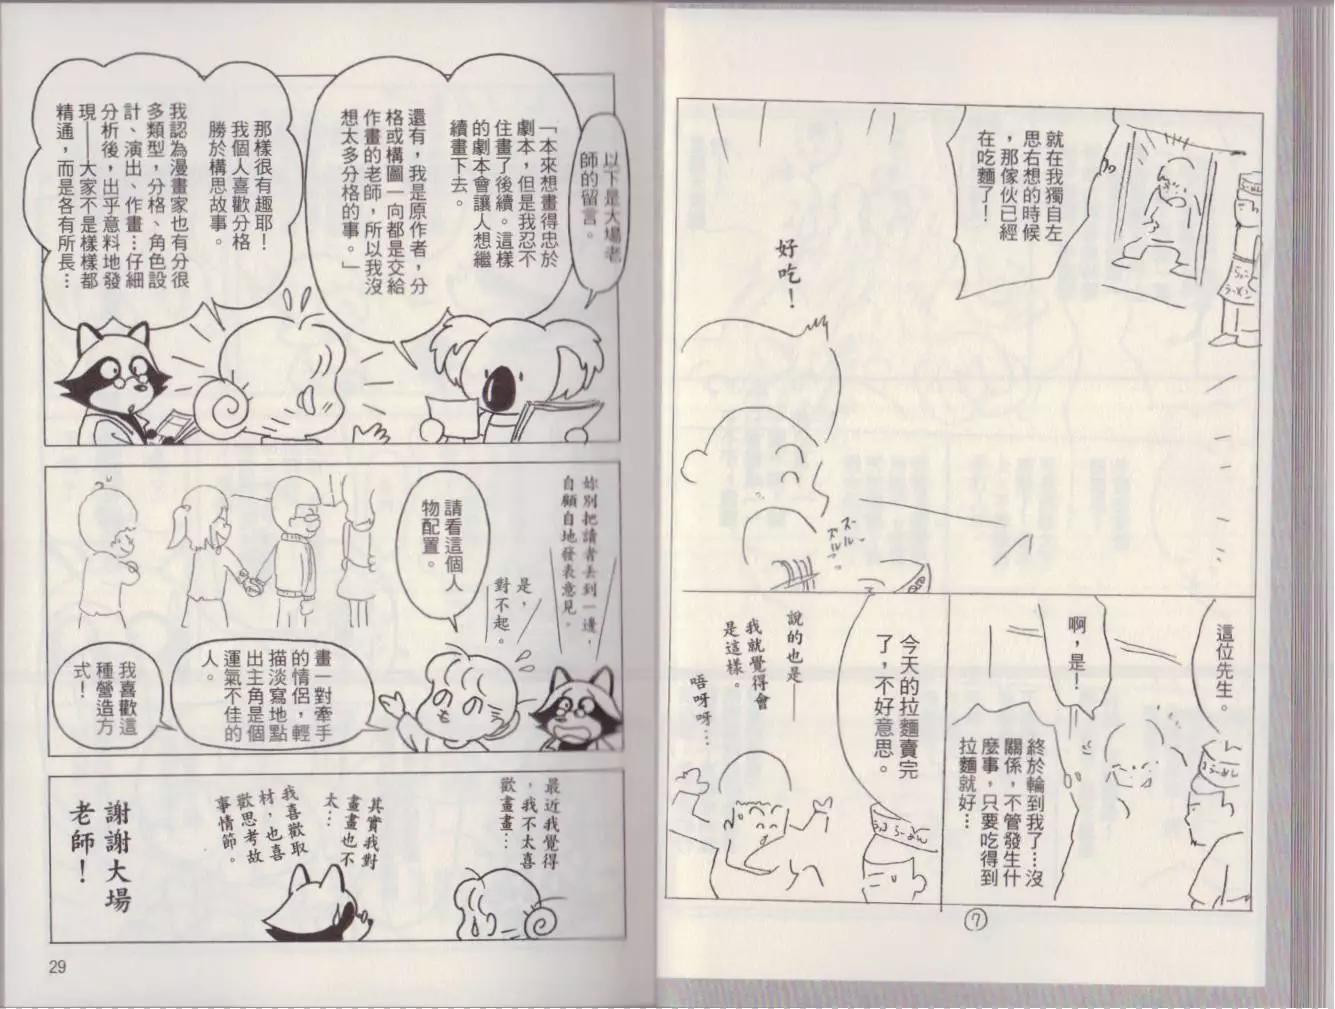 就在我獨自左
思右想的時候
，那傢伙已經
在吃麵了！
好吃！
ズー
ズルルー
ズルッ
這位先生。
啊，是！
終於輪到我了…沒
關係，不管發生什
麼事，只要吃得到
拉麵就好…
今天的拉麵賣完
了，不好意思。
說的也是——
我就覺得會
是這樣。
唔呀呀…
⑦
以下是大場老
師的留言。
「本來想畫得忠於
劇本，但是我忍不
住畫了後續。這樣
的劇本會讓人想繼
續畫下去。
還有，我是原作者，分
格或構圖一向都是交給
作畫的老師，所以我沒
想太多分格的事。」
那樣很有趣耶！
我個人喜歡分格
勝於構思故事。
我認為漫畫家也有分很
多類型，分格、角色設
計、演出、作畫…仔細
分析後，出乎意料地發
現——大家不是樣樣都
精通，而是各有所長…
妳別把讀者丟到一邊，
自顧自地發表意見。
是，
對不起。
請看這個人
物配置。
畫一對牽手
的情侶，輕
描淡寫地點
出主角是個
運氣不佳的
人。
我喜歡這
種營造方
式！
最近我覺得
，我不太喜
歡畫畫…
其實我對
畫畫也不
太…
我喜歡取
材，也喜
歡思考故
事情節。
謝謝大場
老師！
29